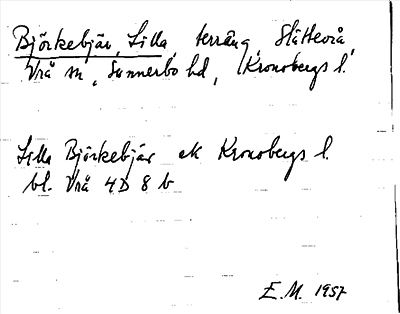 Björkebjär, Lilla, terräng, Slättevrå,
Vrå sn, Sunnerbo hd, Kronobergs l.
Lilla Björkebjär ek Kronobergs l.
bl. Vrå 4D 8 b
E.M. 1957